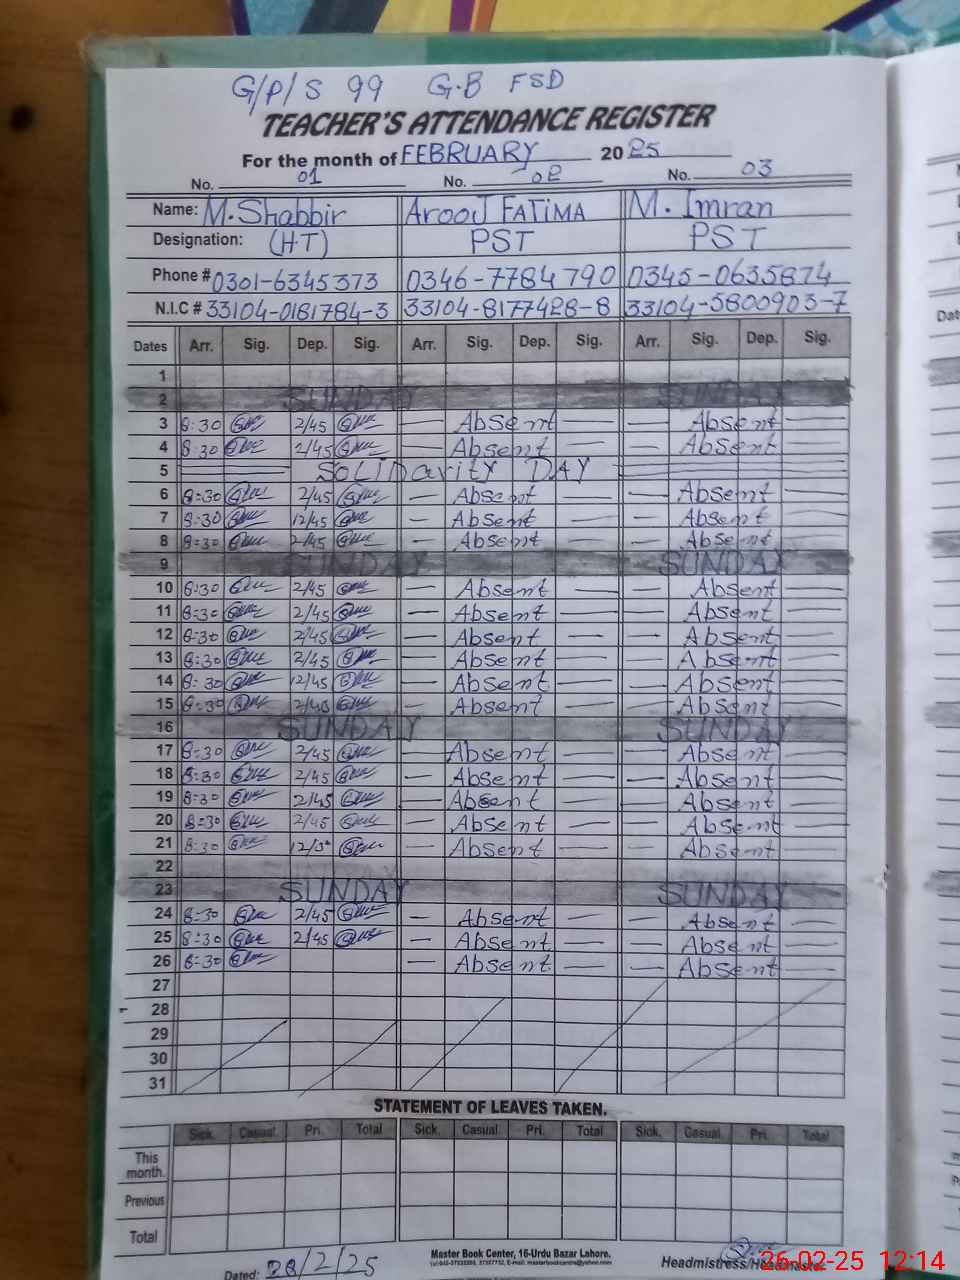 G/P/S 99 G.B FSD
TEACHER'S ATTENDANCE REGISTER
For the month of FEBRUARY 2025
No. 01 No. 02 No. 03
Name: M.Shabbir Arooj FATIMA M. Imran
Designation: (H.T) PST PST
Phone # 0301-6345373 0346-7784790 0345-0635874
N.I.C # 33104-0181784-3 33104-8177428-8 33104-5800903-7
Dates Arr. Sig. Dep. Sig. Arr. Sig. Dep. Sig. Arr. Sig. Dep. Sig.
1
2 SUNDAY SUNDAY
3 8:30 2/45 Absent Absent
4 8:30 2/45 Absent Absent
5 SOLIDarity DAY
6 8:30 2/45 Absent Absent
7 8:30 12/45 Absent Absent
8 8:30 2/45 Absent Absent
9 SUNDAY SUNDAY
10 8:30 2/45 Absent Absent
11 8:30 2/45 Absent Absent
12 8:30 2/45 Absent Absent
13 8:30 2/45 Absent Absent
14 8:30 12/45 Absent Absent
15 8:30 2/45 Absent Absent
16 SUNDAY SUNDAY
17 8:30 2/45 Absent Absent
18 8:30 2/45 Absent Absent
19 8:30 2/45 Absent Absent
20 8:30 2/45 Absent Absent
21 8:30 Absent Absent
22
23 SUNDAY SUNDAY
24 8:30 2/45 Absent Absent
25 8:30 2/45 Absent Absent
26 8:30 Absent Absent
27
28
29
30
31
STATEMENT OF LEAVES TAKEN.
Sick. Casual. Pri. Total Sick. Casual. Pri. Total Sick. Casual. Pri. Total
This month.
Previous
Total
Dated: 28/2/25
Master Book Center, 16-Urdu Bazar Lahore.
Headmistress/Headmaster
26-02-25 12:14